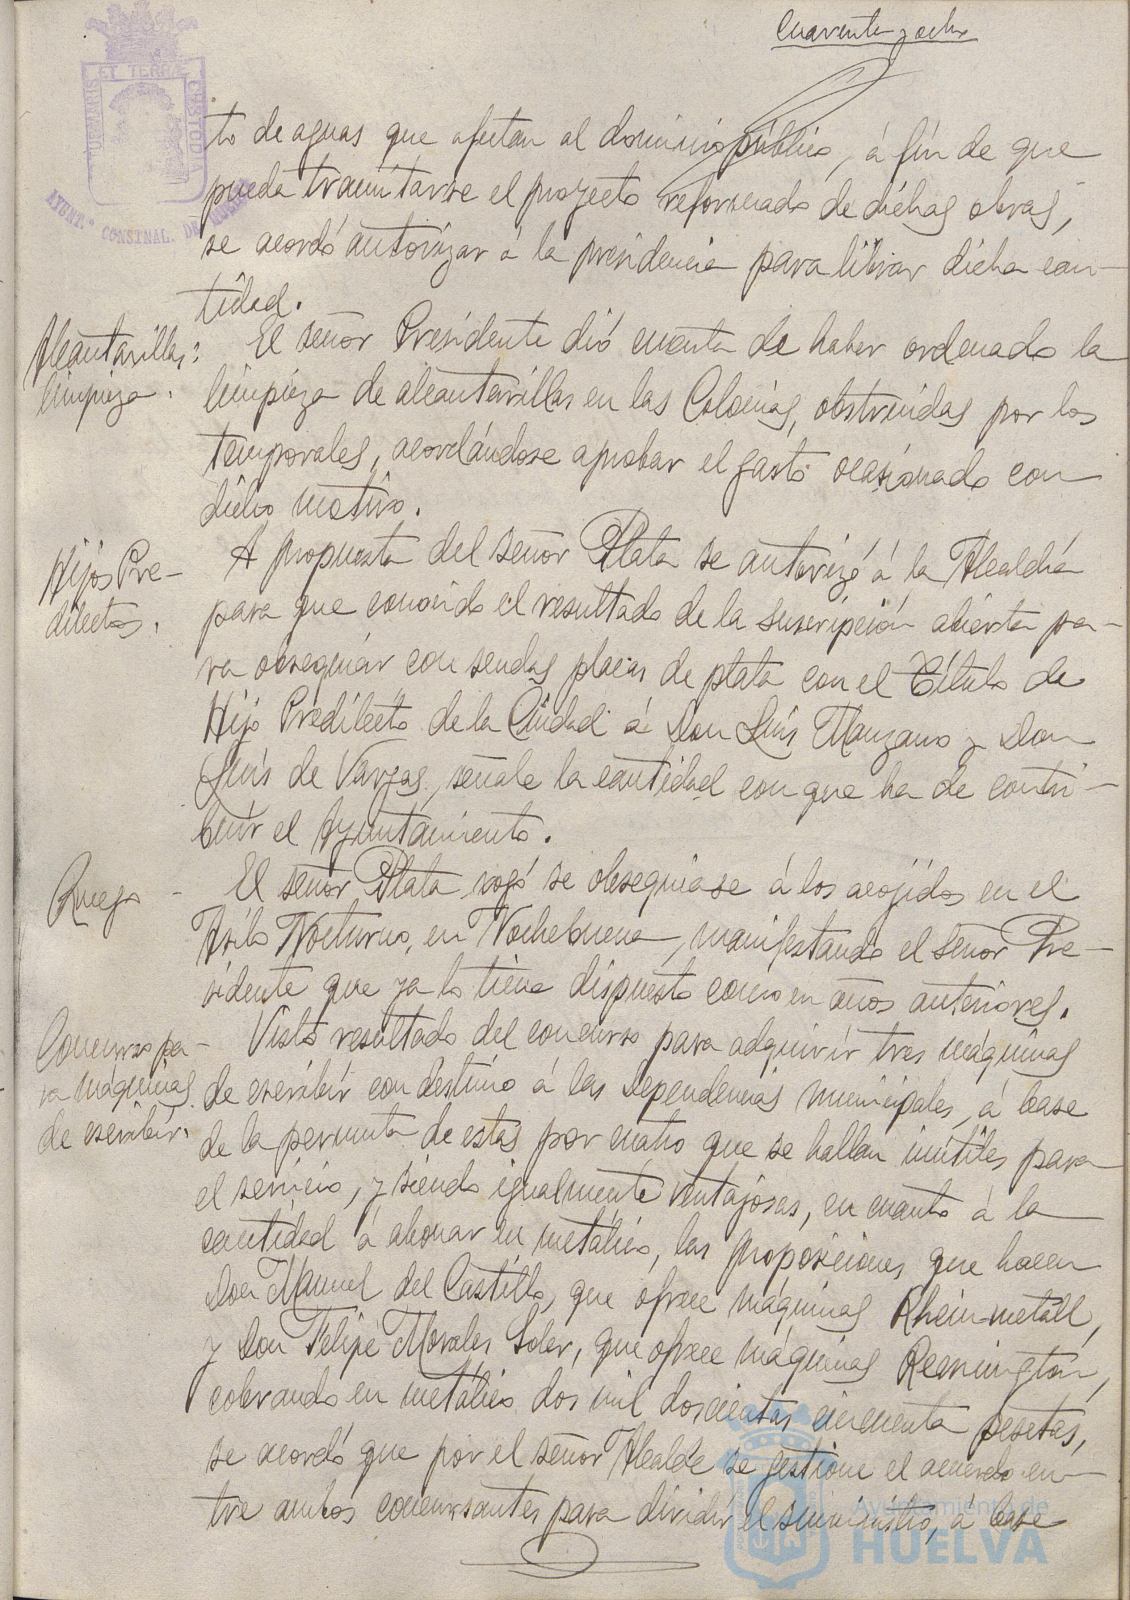 Cuarenta y ocho
PORTUS MARIS ET TERRAE CUSTODIA
AYUNT.º CONSTNAL. DE HUELVA
to de aguas que afectan al dominio público, á fin de que
pueda tramitarse el proyecto reformado de dichas obras,
se acordó autorizar á la presidencia para librar dicha can-
tidad.
Alcantarillas:
limpieza.
El señor Presidente dió cuenta de haber ordenado la
limpieza de alcantarillas en las Colonias, obstruidas por los
temporales, acordándose aprobar el gasto ocasionado con
dicho motivo.
Hijos Pre-
dilectos.
A propuesta del señor Plata se autorizó á la Alcaldía
para que conocido el resultado de la suscripción abierta pa-
ra obsequiar con sendas placas de plata con el Título de
Hijo Predilecto de la Ciudad á Don Luís Manzano y Don
Luís de Vargas, señale la cantidad con que ha de contri-
buir el Ayuntamiento.
Ruego -
El señor Plata rogó se obsequiase á los acojidos en el
Asilo Nocturno, en Nochebuena, manifestando el señor Pre-
sidente que ya lo tiene dispuesto como en años anteriores.
Concurso pa-
ra máquinas
de escribir.
Visto resultado del concurso para adquirir tres máquinas
de escribir con destino á las Dependencias municipales, á base
de la permuta de estas por cuatro que se hallan inútiles para
el servicio, y siendo igualmente ventajosas, en cuanto á la
cantidad á abonar en metálico, las proposiciones que hacen
Don Manuel del Castillo, que ofrece máquinas Rhein-metall,
y Don Felipe Morales Soler, que ofrece máquinas Remington,
cobrando en metálico dos mil doscientas cincuenta pesetas,
se acordó que por el señor Alcalde se gestione el acuerdo en-
tre ambos concursantes para dividir el suministro, á base
Ayuntamiento de
HUELVA